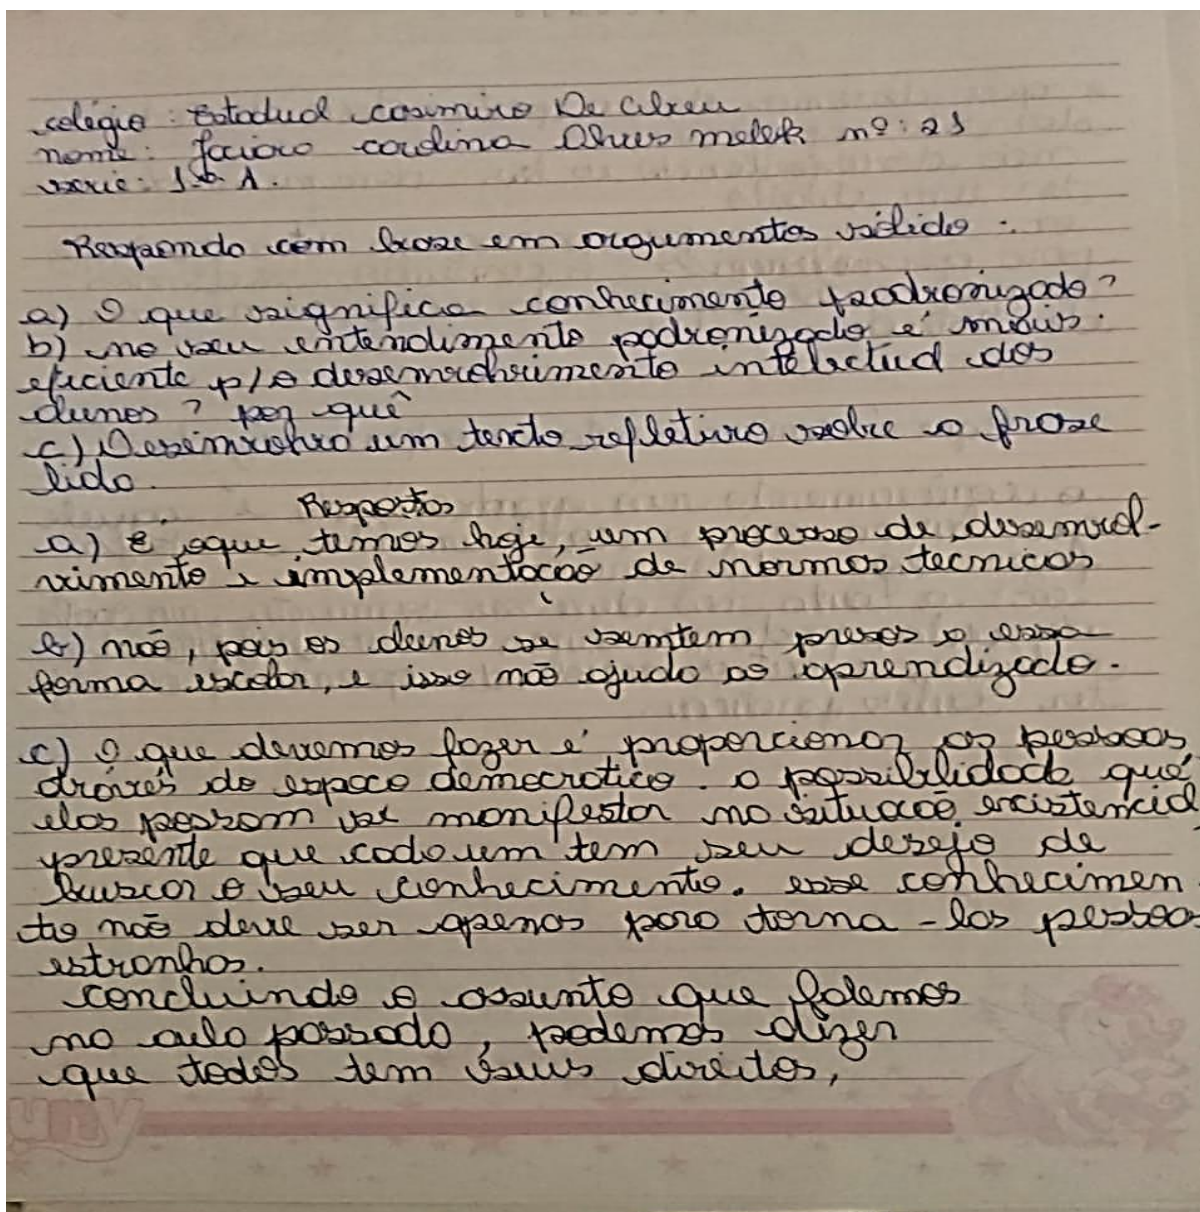 colégio: Estadual casimiro De Abreu
nome: carolina Alves nº: 21
serie: 1ª A.
Responda com base em argumentos válido:
a) O que significa conhecimento padronizado?
b) no seu entendimento padronizado é mais
eficiente p/ o desenvolvimento intelectual dos
alunos? por quê
c) Desenvolva um texto refletivo sobre a frase
lida.
Respostas
a) é oque temos hoje, um processo de desenvol-
vimento e implementação de normas tecnicas
b) não, pois os alunos se semtem presos a essa
forma escolar, e isso não ajuda ao aprendizado.
c) O que devemos fazer é proporcionar as pessoas,
através do espaço democratico. a possibilidade que
elas possam se manifestar na situação existencial
presente que cada um tem seu desejo de
buscar o seu conhecimento. esse conhecimen
to não deve ser apenas para torna-las pessoas
estranhas.
concluindo o assunto que falemos
na aula passada, podemos dizer
que todos tem seus direitos,